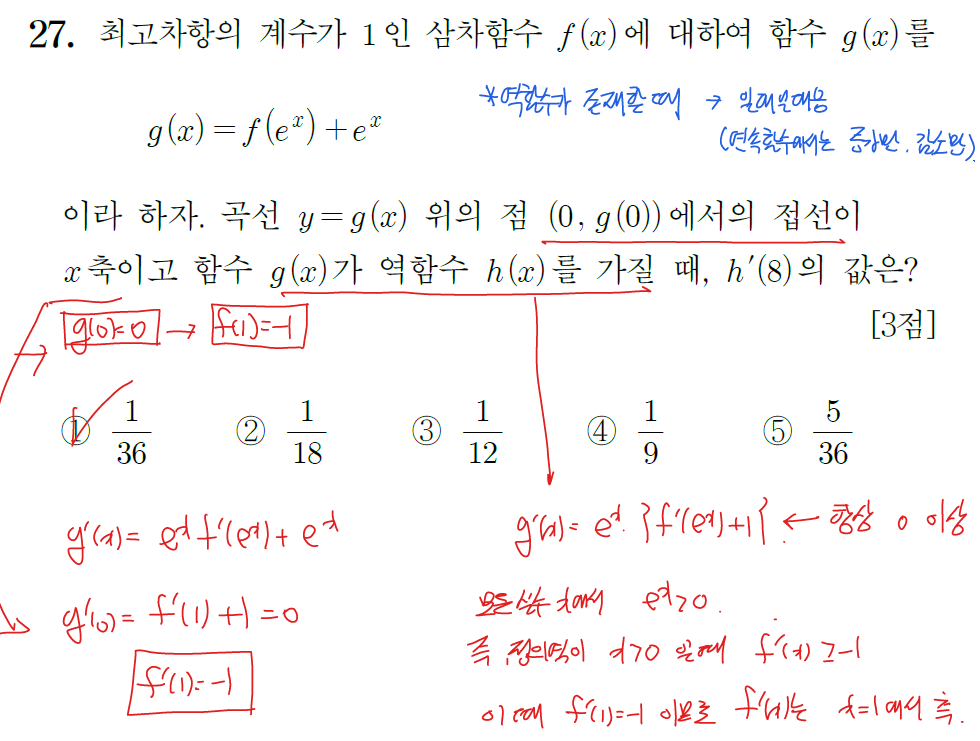 27. 최고차항의 계수가 1인 삼차함수 f(x)에 대하여 함수 g(x)를
*역함수가 존재할 때 → 일대일대응
g(x)=f(e^x)+e^x
(연속함수에서는 증가만, 감소만)
이라 하자. 곡선 y=g(x) 위의 점 (0, g(0))에서의 접선이
x축이고 함수 g(x)가 역함수 h(x)를 가질 때, h′(8)의 값은?
[3점]
g(0)=0 → f(1)=-1
① 1/36 ② 1/18 ③ 1/12 ④ 1/9 ⑤ 5/36
g′(x)= e^x f′(e^x)+ e^x
g′(x)= e^x·{f′(e^x)+1} ← 항상 0 이상
g′(0)= f′(1)+1=0
f′(1)=-1
모든 실수 x에서 e^x>0.
즉, 정의역이 x>0 일때 f′(x)≥-1
이때 f′(1)=-1 이므로 f′(x)는 x=1에서 축.